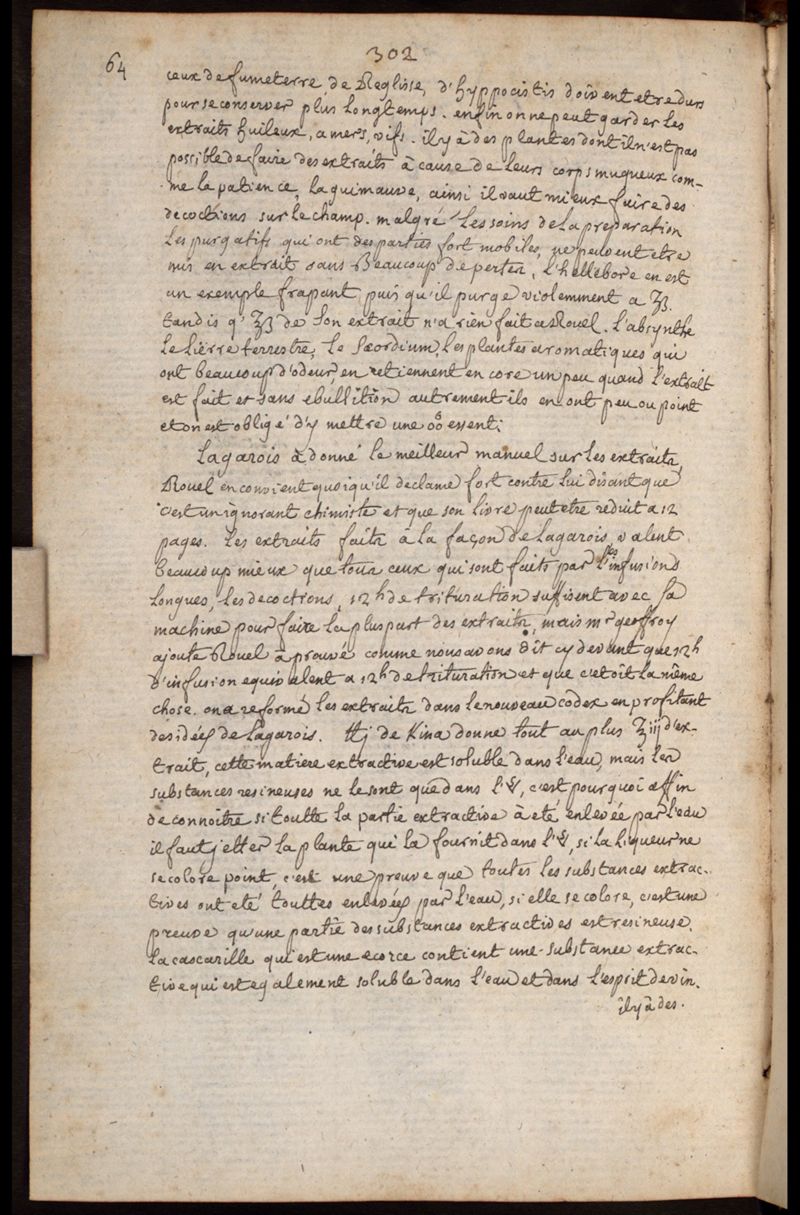 302
64
ceux de fumeterre, de Reglisse, d'hyppocistis doivent etre durs
pour se conserver plus longtemps. enfin on ne peut garder les
extraits huileux, amers, vifs. il y à des plantes dont il n'est pas
possible de faire des extraits à cause de leurs corps muqueux com-
me la patience, la guimauve, ainsi il vaut mieux faire des
decoctions sur le champ. malgré les soins de la preparation
les purgatifs qui ont des parties fort mobiles, ne peuvent etre
mis en extrait sans beaucoup de pertes, l'hellebore en est
un exemple frapant, puis qu'il purge violemment a
tandis q' de son extrait n'a rien fait a Rouel. l'absynthe
le lierre terrestre, le scordium, les plantes aromatiques qui
ont beaucoup d'odeur, en retiennent encore un peu quand l'extrait
est fait et sans ebullition autrement ils en ont peu ou point
et on est obligé d'y mettre une essent:
Lagarois à donné le meilleur manuel sur les extraits,
Rouel en convient quoiqu'il declame fort contre lui disant que
c'est un ignorant chimiste et que son livre peut etre reduit a 12
pages. les extraits faits à la façon de Lagarois, valent
beaucoup mieux que tous ceux qui sont faits par les infusions
longues, les decoctions, 12h de trituration suffisent avec sa
machine pour faire la pluspart des extraits, mais mr geoffroy
ajoute Rouel à prouvé comme nous avons dit cy devant que 12h
d'infusion equivalent a 12h de trituration et que c'etoit la même
chose. on a reformé les extraits dans le nouveau codex en profitant
des idées de Lagarois. de Kina donne tout au plus ʒiij d'ex-
trait, cette matiere extractive est soluble dans l'eau, mais les
substances resineuses ne le sont que dans l' c'est pourquoi affin
de connoitre si toutte la partie extractive à eté enlevée par l'eau
il faut jetter la plante qui la fournit dans l' si la liqueur ne
se colore point, c'est une preuve que toutes les substances extrac-
tives ont eté touttes enlevées par l'eau, si elle se colore, c'est une
preuve qu'une partie des substances extractives est resineuse.
la cascarille qui est une ecorce contient une substance extrac-
tive qui est egalement soluble dans l'eau et dans l'esprit de vin.
il y à des.